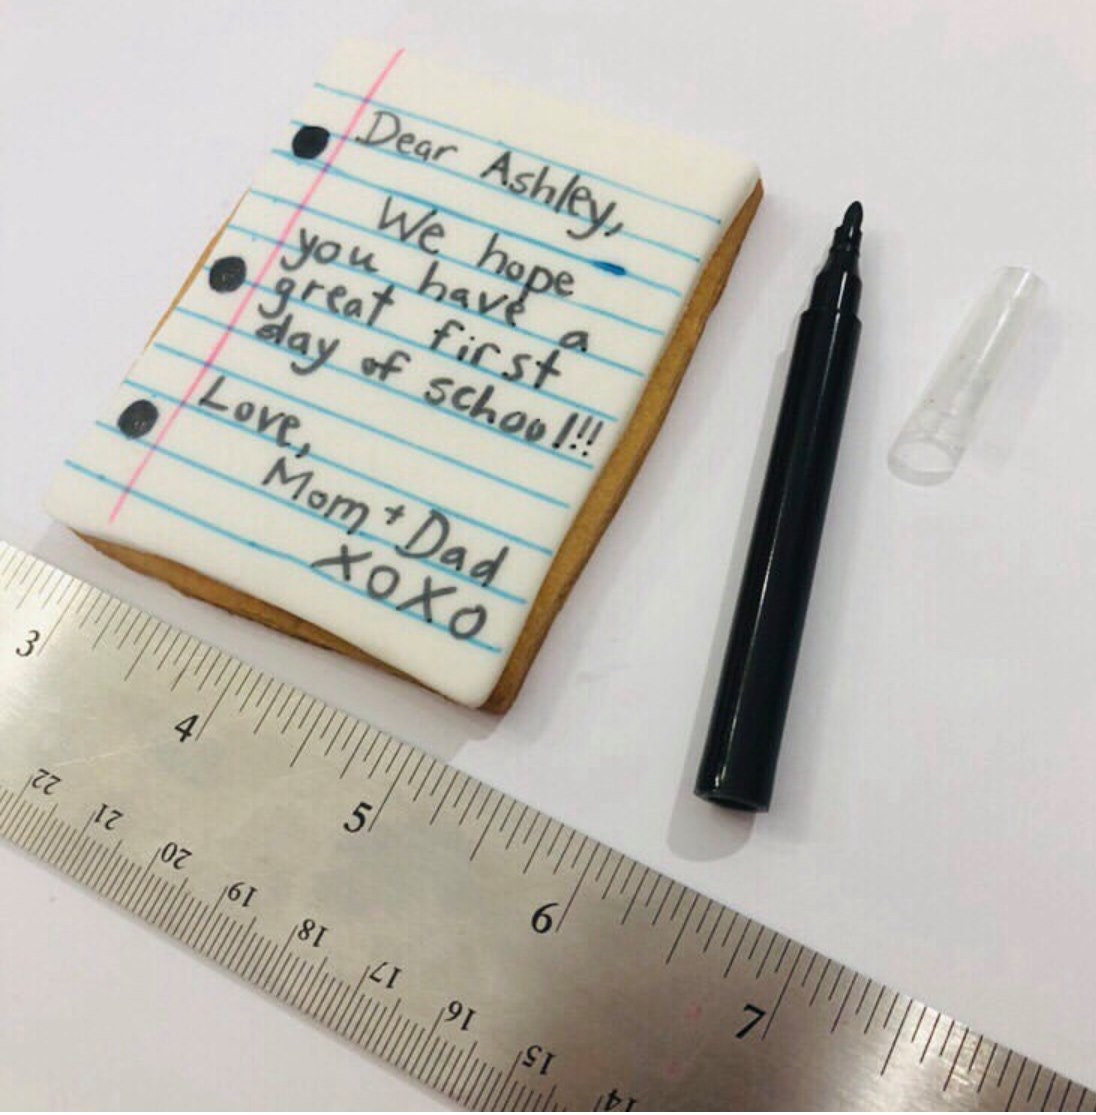 Dear Ashley,
We hope
you have a
great first
day of school!!!
Love,
Mom + Dad
XOXO
3 4 5 6 7
22 21 20 19 18 17 16 15 14